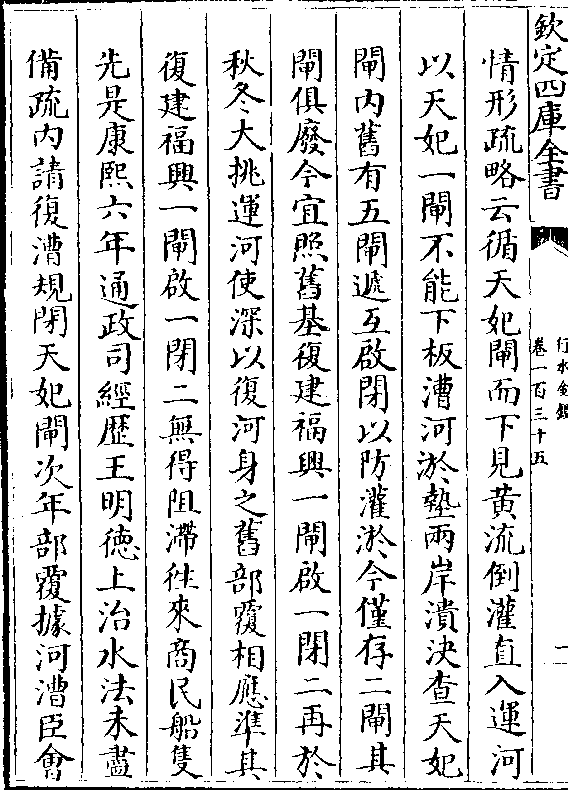 欽定四庫全書
行水金鑑
卷一百三十五
一
情形疏略云循天妃閘而下見黄流倒灌直入運河
以天妃一閘不能下板漕河淤墊兩岸潰決查天妃
閘内舊有五閘遞互啟閉以防灌淤今僅存二閘其
閘俱廢今宜照舊基復建福興一閘啟一閉二再於
秋冬大挑運河使深以復河身之舊部覆相應準其
復建福興一閘啟一閉二無得阻滯徃來商民船隻
先是康熙六年通政司經歴王明德上治水法未盡
備疏内請復漕規閉天妃閘次年部覆據河漕臣㑹